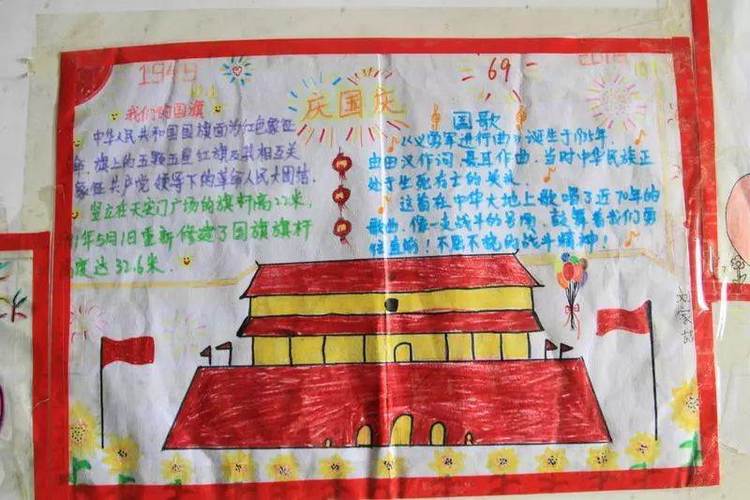 1949
69
2018
庆国庆
我们的国旗
中华人民共和国国旗面为红色象征
旗上的五颗五星红旗及其相互关
象征共产党领导下的革命人民大团结.
竖立在天安门广场的旗杆高22米,
1年5月1日重新修建了国旗旗杆
度达32.6米.
国歌
《义勇军进行曲》诞生于
由田汉作词.聂耳作曲.当时中华民族正
处于生死存亡的关头.
这首在中华大地上歌唱了近70年的
歌曲.像一支战斗的号角.鼓舞着我们勇
往直前!不屈不挠的战斗精神!